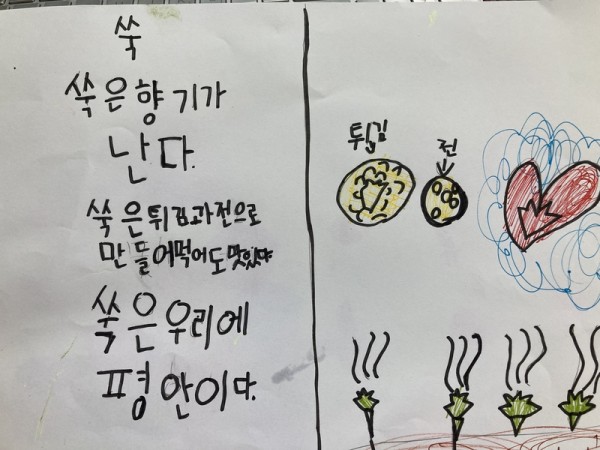 쑥
쑥은향기가
난다.
쑥은튀김과전으로
만들어먹어도맛있다
쑥은우리에
평안이다.
튀김
전